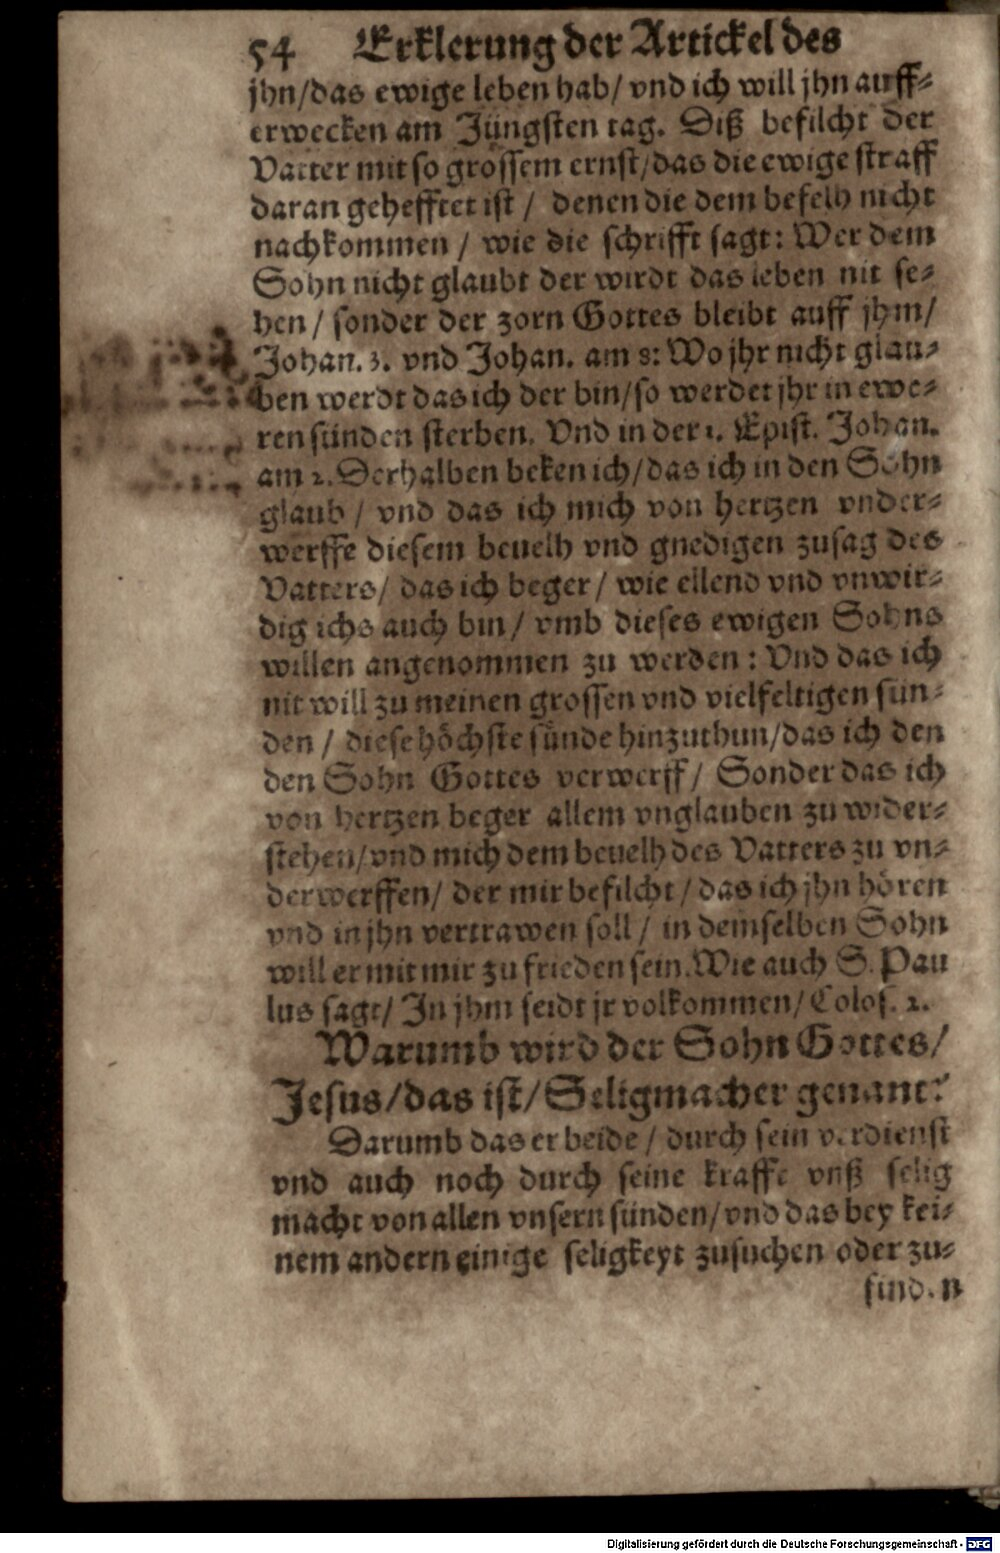 54 Erklerung der Artickel des
jhn/das ewige leben hab/ vnd ich will jhn auff⸗
erwecken am Jüngsten tag. Diß befilcht der
Vatter mit so grossem ernst/das die ewige straff
daran gehefftet ist / denen die dem befelh nicht
nachkommen / wie die schrifft sagt: Wer dem
Sohn nicht glaubt der wirdt das leben nit se⸗
hen / sonder der zorn Gottes bleibt auff jhm/
Johan. 3. vnd Johan. am 8: Wo jhr nicht glau⸗
ben werdt das ich der bin/so werdet jhr in ewe⸗
ren sünden sterben. Vnd in der 1. Epist. Johan.
am 2. Derhalben beken ich/das ich in den Sohn
glaub / vnd das ich mich von hertzen vnder⸗
werffe diesem beuelh vnd gnedigen zusag des
Vatters/ das ich beger/ wie ellend vnd vnwir⸗
dig ichs auch bin/ vmb dieses ewigen Sohns
willen angenommen zu werden: Vnd das ich
nit will zu meinen grossen vnd vielfeltigen sün⸗
den / diese höchste sünde hinzuthun/das ich den
den Sohn Gottes verwerff/ Sonder das ich
von hertzen beger allem vnglauben zu wider⸗
stehen/vnd mich dem beuelh des Vatters zu vn⸗
derwerffen/ der mir befilcht/das ich jhn hören
vnd in jhn vertrawen soll/ in demselben Sohn
will er mit mir zu frieden sein. Wie auch S. Pau
lus sagt/ In jhm seidt jr volkommen/ Colos. 2.
Warumb wird der Sohn Gottes/
Jesus/das ist/Seligmacher genant?
Darumb das er beide/ durch sein verdienst
vnd auch noch durch seine krafft vnß selig
macht von allen vnsern sünden/vnd das bey kei⸗
nem andern einige seligkeyt zusuchen oder zu⸗
finden
Digitalisierung gefördert durch die Deutsche Forschungsgemeinschaft - DFG